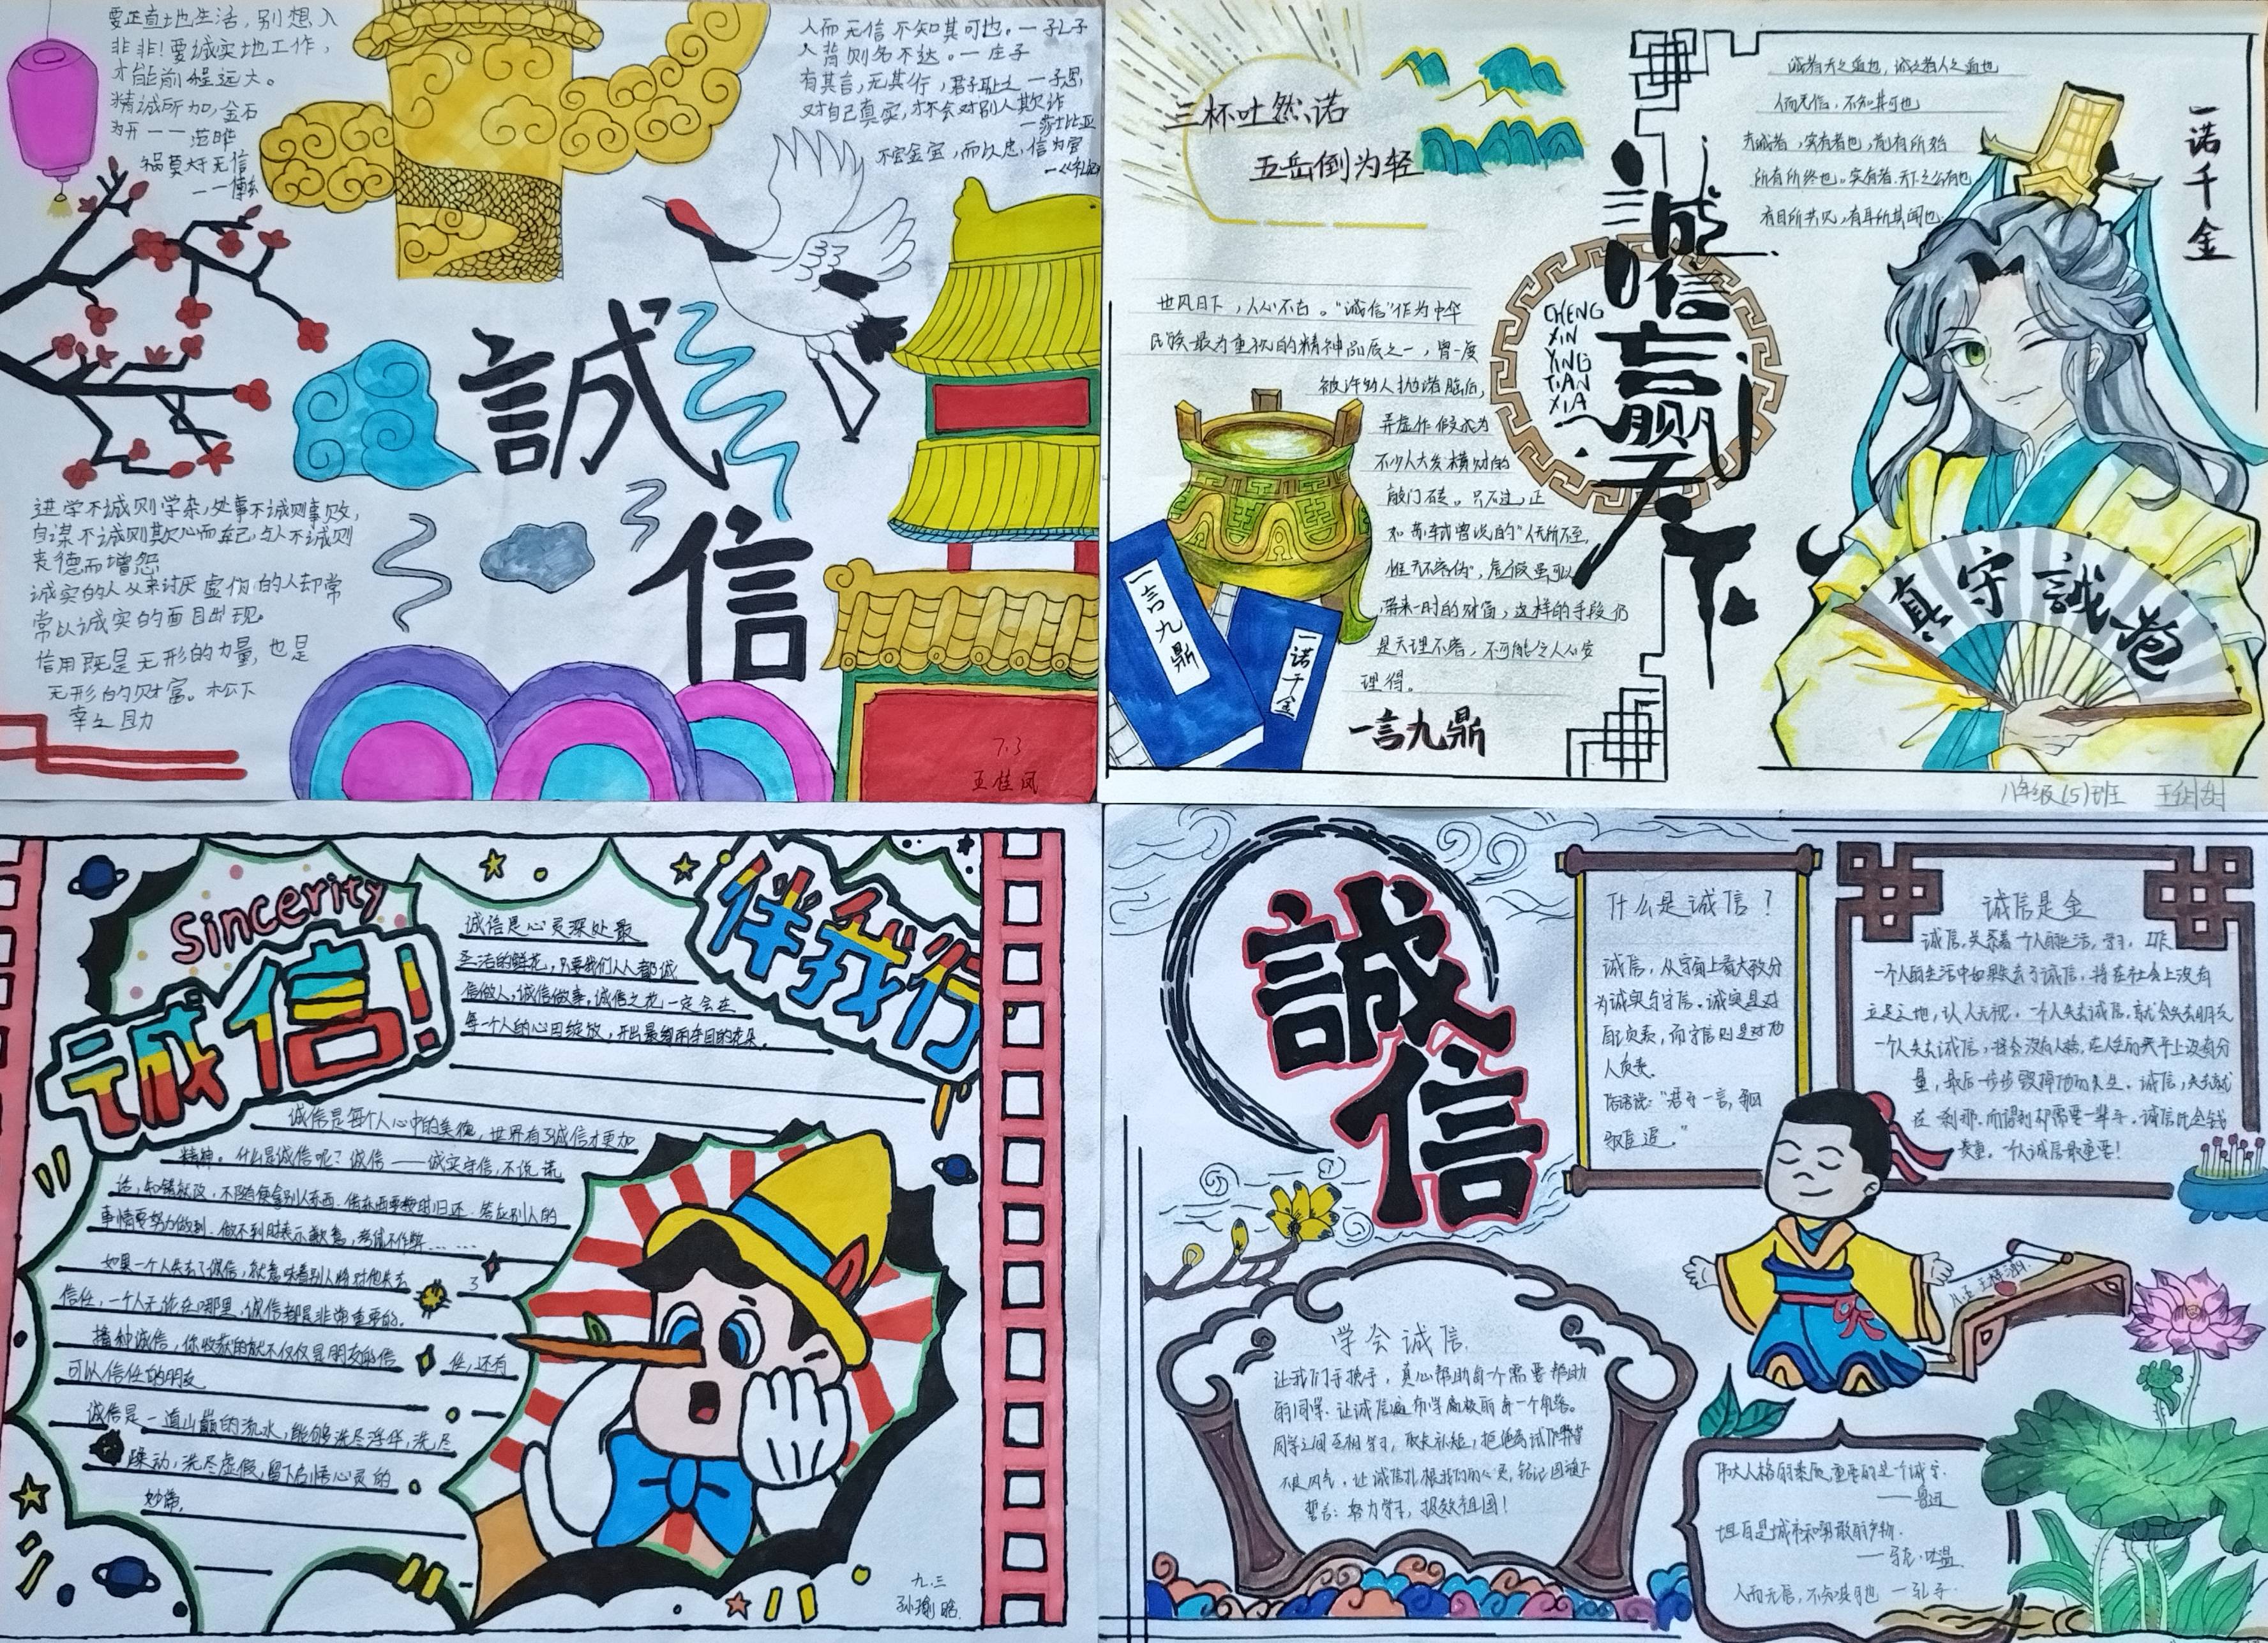 要正直土也生活，别想入
非非！要诚实地工作，
才能前程远大。
精诚所加，金石
为开——范晔
祸莫大于无信
——傅玄
人而无信不知其可也。—孔子
人背则名不达。—庄子
有其言，无其行，君子耻之 —子思
对自己真实，才不会对别人欺诈
—莎士比亚
不宝金宝，而以忠，信为宝
—《礼记
誠
信
进学不诚则学杂，处事不诚则事败，
自谋不诚则欺心而弃己，与人不诚则
丧德而增怨
诚实的人从来讨厌虚伪的人却常
常以诚实的面目出现。
信用既是无形的力量，也是
无形的财富。松下
幸之助
7.3
王桂凤
三杯吐然诺
五岳倒为轻
世风日下，人心不古。“诚信”作为中华
民族最为重视的精神品质之一，曾一度
被许多人抛诸脑后，
弄虚作假成为
不少人大发横财的
敲门砖。只不过，正
和苏轼曾说的“人无所不至，
惟天不容伪”，虚假虽可以
带来一时的财富，这样的手段仍
是天理不容，不可能令人心安
理得。
一言九鼎
一诺千金
一言九鼎
誠信赢天下
CHENG
XIN
YING
TIAN
XIA
诚者天之道也，诚之者人之道也
人而无信，不知其可也
夫诚者，实有者也，前有所始
所有所终也。实有者，天下之公有也
有目所共见，有耳所共闻也
一诺千金
真守誠抱
八年级(5)班
Sincerity
诚信！
伴我行
诚信是心灵深处最
圣洁的鲜花，只要我们人人都诚
信做人，诚信做事，诚信之花一定会在
每一个人的心田绽放，开出最绚丽夺目的花朵。
诚信是每个人心中的美德，世界有了诚信才更加
精神。什么是诚信呢？诚信——诚实守信，不说谎
话，知错就改，不随便拿别人东西，借东西要按时归还，答应别人的
事情要努力做到，做不到时表示歉意，考试不作弊……
如果一个人失去了诚信，就意味着别人将对他失去
信任，一个人无论在哪里，诚信都是非常重要的。
播种诚信，你收获的就不仅仅是朋友的信任，还有
可以信任的朋友
诚信是一道山巅的流水，能够洗尽浮华，洗尽
躁动，洗尽虚假，留下启悟心灵的
妙谛。
九.三
誠
信
什么是诚信？
诚信，从字面上看大致分
为诚实与守信。诚实是对
自己负责，而守信则是对他
人负责。
俗话说：“君子一言，驷马
难追。”
诚信是金
诚信，关系着一个人的生活，学习，工作
一个人的生活中如果失去了诚信，将在社会上没有
立足之地，让人无视。一个人失去诚信，就会失去朋友
一个人失去诚信，将会没有人格，在人生的天平上没有分
量，最后一步步毁掉他的人生。诚信，失去就
在一刹那，而得到却需要一辈子。诚信比金钱
贵重。一个人诚信最重要！
学会诚信
让我们手携手，真心帮助每个需要帮助
的同学，让诚信遍布学高校园每一个角落。
同学之间互相学习，取长补短，拒绝考试作弊等
不良风气，让诚信扎根我们的心灵，铭记国旗下
誓言：努力学习，报效祖国！
伟大人格的素质，重要的是一个诚字。
——鲁迅
坦白是诚实和勇敢的产物。
——马克·吐温
人而无信，不知其可也 —孔子